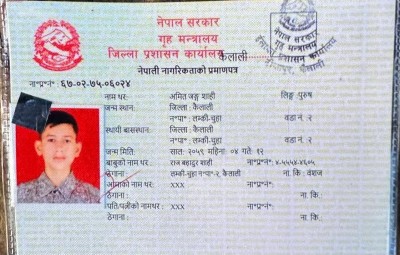 नेपाल सरकार
गृह मन्त्रालय
जिल्ला प्रशासन कार्यालय, कैलाली
नेपाली नागरिकताको प्रमाणपत्र
नेपाल सरकार
गृह मन्त्रालय
जिल्ला प्रशासन कार्यालय
कैलाली
ना॰प्र॰नं॰: ६७-०२-७५-०६२४
नाम थर: अमित जङ्ग शाही लिङ्ग: पुरुष
जन्म स्थान: जिल्ला: कैलाली
न॰पा॰: लम्की-चुहा वडा नं. २
स्थायी बासस्थान: जिल्ला: कैलाली
न॰पा॰: लम्की-चुहा वडा नं. २
जन्म मिति: साल: २०५९ महिना: ०४ गते: १२
बाबुको नाम थर: राज बहादुर शाही ना॰प्र॰नं॰: ४-५५५४-४६०५
ठेगाना: लम्की-चुहा न॰पा॰-२, कैलाली ना. कि.: वंशज
आमाको नाम थर: xxx ना॰प्र॰नं:
ठेगाना: ना. कि.:
पति/पत्नीको नामथर: xxx ना॰प्र॰नं:
ठेगाना: ना. कि.: